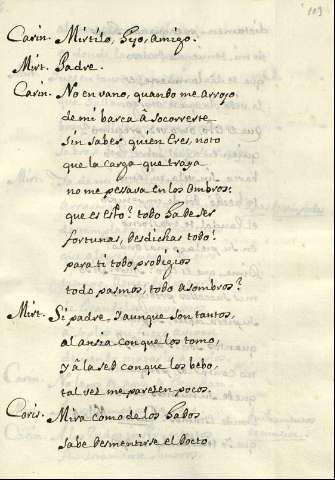 109
Carin. Mirtilo, Hijo, amigo.
Mirt. Padre.
Carin. No en vano, quando me arrojo
de mi barca â Socorrerte
Sin saber quien Eres, noto
que la carga que traya
no me pesava en los ombros:
que es esto? todo ha de ser
fortunas, desdichas todo?
para ti todo prodigios
todo pasmos, todo asombros?
Mirt. Si padre, y aunque son tantos,
al ansia con que los tomo,
y â la sed con que los bebo,
tal vez me parezen pocos.
Coris. Mira cómo de los hados
sabe desmentirse el docto